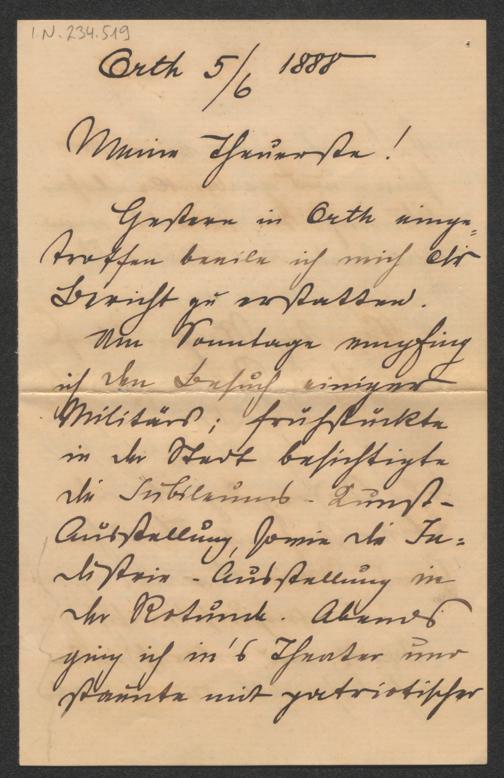 I.N. 234.519
Orth 5/6 1888
Meine Theuerste!
Gestern in Orth einge=
troffen beeile ich mich Dir
Bericht zu erstatten.
Am Sonntage empfing
ich den Besuch einiger
Militärs; frühstückte
in der Stadt besichtigte
die Jubileums-Kunst-
Ausstellung, sowie die In=
dustrie-Ausstellung in
der Rotunde. Abends
ging ich in's Theater und
staunte mit patriotischer